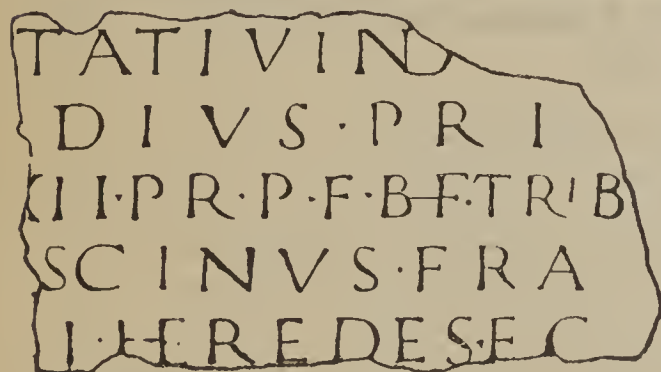 TATIVIND
DIVS·PRI
XII·PR·P·F·B·F·TRIB
SCINVS·FRA
I·HEREDES·FC